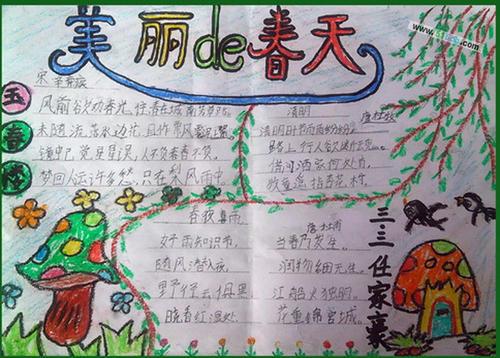 美丽de春天
宋 辛弃疾
玉春楼
风前欲劝春光住,春在城南芳草路。
未随流落水边花,且作
镜中已觉星星误,人不负春春不负。
梦回人远许多愁,只在梨花风雨中。
清明
唐杜牧
清明时节雨纷纷,
路上行人欲断魂。
借问酒家何处有,
牧童遥指杏花村。
春夜喜雨
唐杜甫
好雨知时节, 当春乃发生。
随风潜入夜, 润物细无生。
野径云俱黑, 江船火独明。
晓春红湿处, 花重锦宫城。
三.三 任家襄